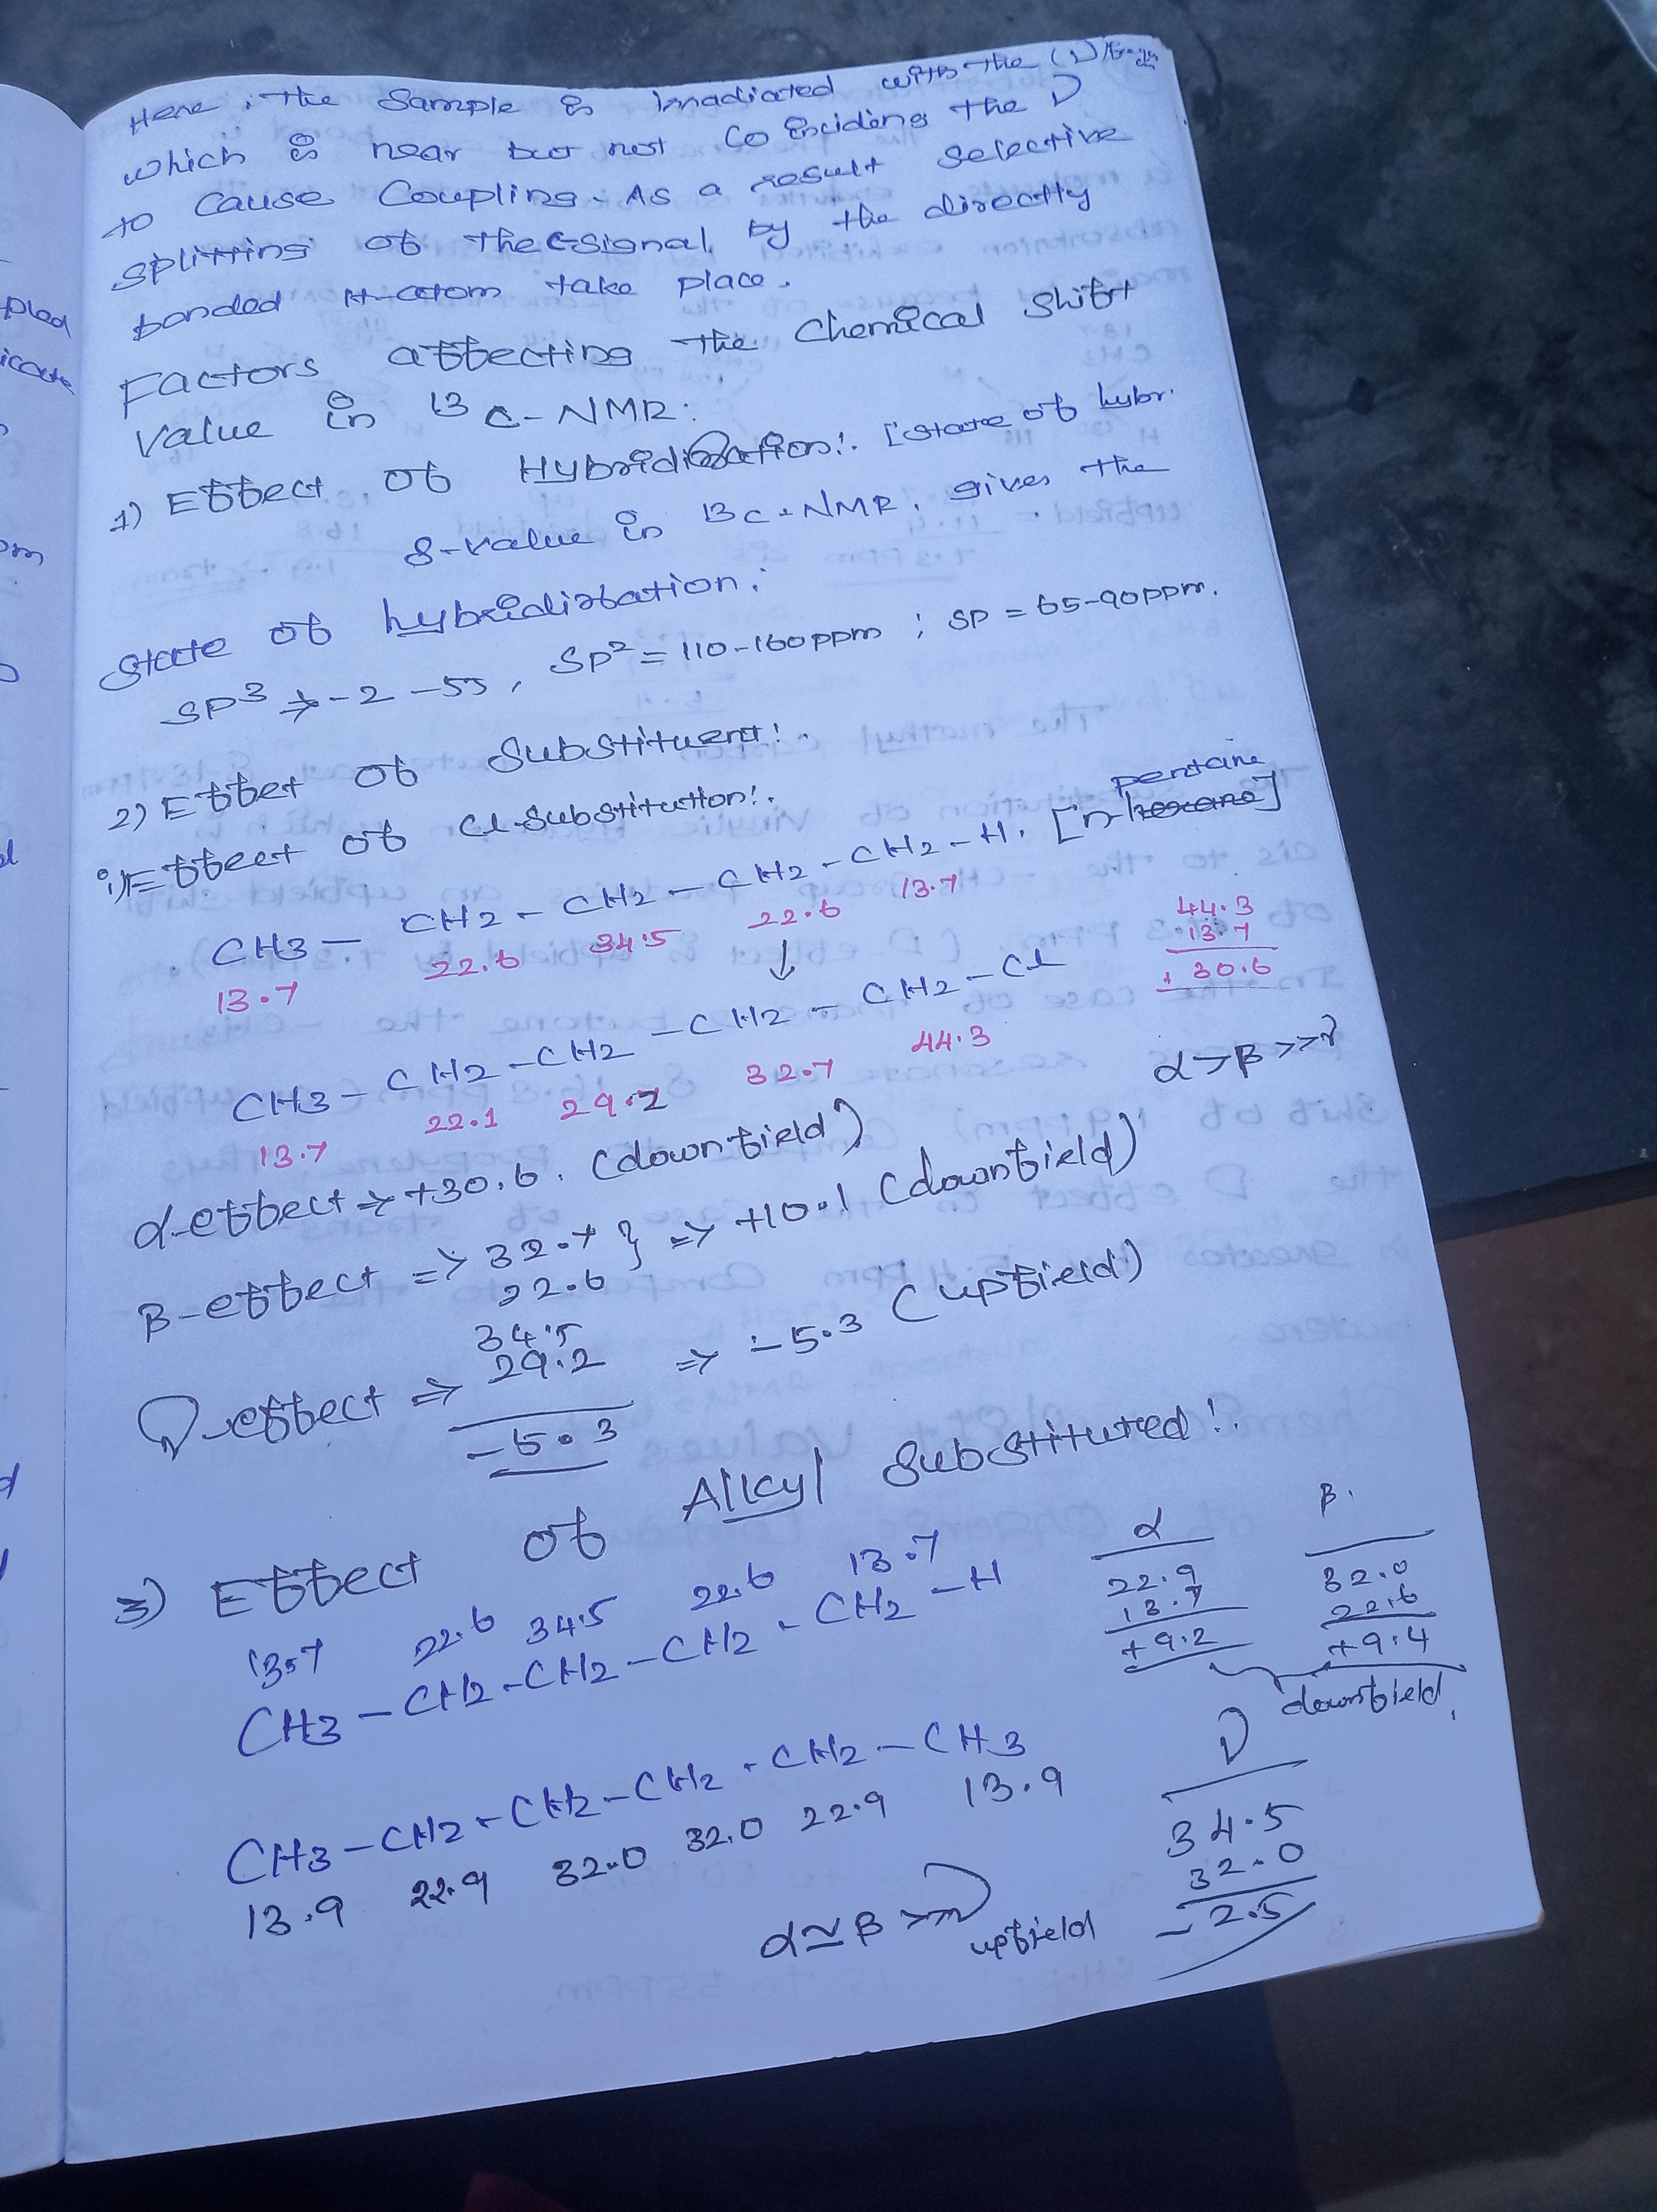 Here, the sample is irradiated with the (ν)
which is near but not coinciding the ν
to cause coupling. As a result selective
splitting of the C signal by the directly
bonded H-atom take place.
Factors affecting the chemical shift
value in 13C-NMR:
1) Effect of Hybridisation:. [state of hybr.
δ-value in 13C-NMR, gives the
state of hybridisation:
SP3 => -2 -55, SP2 = 110-160 ppm ; SP = 65-90 ppm.
2) Effet of Substituent:.
i) Effect of Cl-substitution:.
CH3 - CH2 - CH2 - CH2 - CH2 - H. [n-pentane]
13.7 22.6 34.5 22.6 13.7
↓
44.3
13.7
+ 30.6
CH3 - CH2 - CH2 - CH2 - CH2 - Cl
13.7 22.1 29.2 32.7 44.3
α > β >> γ
α-effect => +30.6. (downfield)
β-effect => 32.7 } => +10.1 (downfield)
22.6
34.5
γ-effect => 29.2 => -5.3 (upfield)
-5.3
3) Effect of Alkyl Substituted:.
13.7 22.6 34.5 22.6 13.7
CH3 - CH2 - CH2 - CH2 - CH2 - H
α
22.9
13.7
+9.2
β.
32.0
22.6
+9.4
downfield.
CH3 - CH2 - CH2 - CH2 - CH2 - CH3
13.9 22.9 32.0 32.0 22.9 13.9
γ
34.5
32.0
-2.5
α ≃ β >> γ
upfield